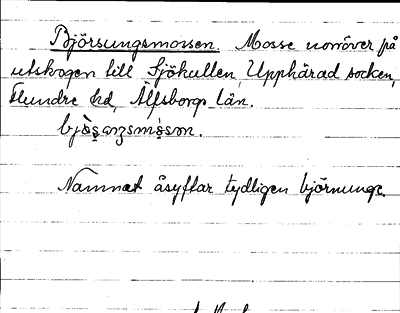 Björsungsmossen. Mosse norröver på
utskogen till Sjökullen, Upphärad socken,
Flundre hd, Älfsborgs län.
Namnet åsyftar tydligen björnunge.